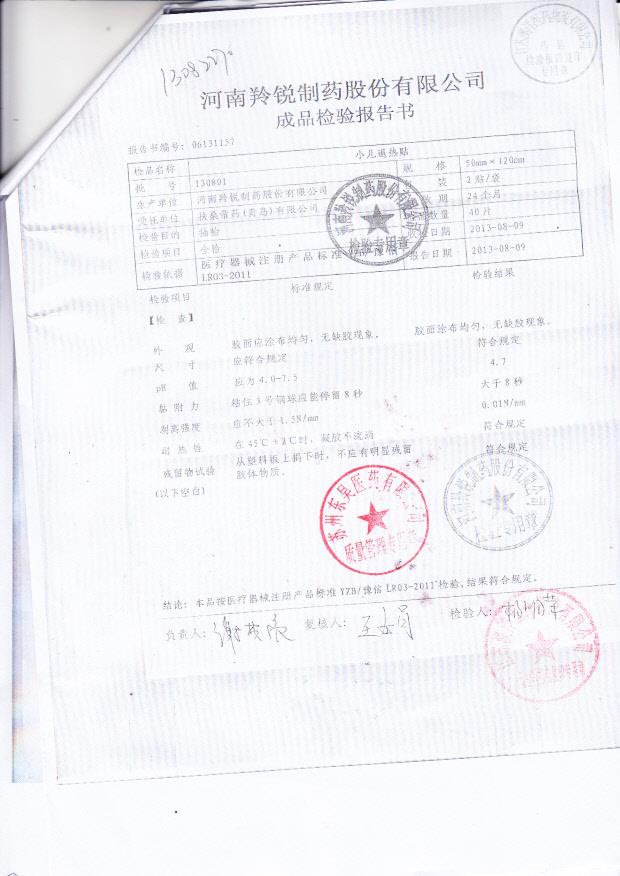 河南羚锐制药股份有限公司
成品检验报告书
报告书编号: 06131157
检品名称 小儿退热贴
批 号 130801 规 格 50mm×120mm
生产单位 河南羚锐制药股份有限公司 装 2贴/袋
受托单位 扶桑帝药(青岛)有限公司 期 24个月
检验目的 抽验 数量 40片
检验项目 全检 日期 2013-08-09
检验依据 医疗器械注册产品标准 报告日期 2013-08-09
LR03-2011
检验项目 标准规定 检验结果
【检 查】
外 观 胶面应涂布均匀, 无缺胶现象。 胶面涂布均匀, 无缺胶现象。
尺 寸 应符合规定 符合规定
pH 值 应为 4.0-7.5 4.7
黏附力 粘住 3 号钢球应能停留 8 秒 大于 8 秒
剥离强度 应不大于 1.5N/mm 0.01N/mm
耐热性 在 45℃±2℃时, 凝胶不流淌 符合规定
残留物试验 从塑料板上揭下时, 不应有明显残留 符合规定
胶体物质。
(以下空白)
苏州东吴医药有限公司
质量管理专用章
结论: 本品按医疗器械注册产品标准 YZB/豫信 LR03-2011 检验, 结果符合规定。
负责人: 复核人: 检验人: